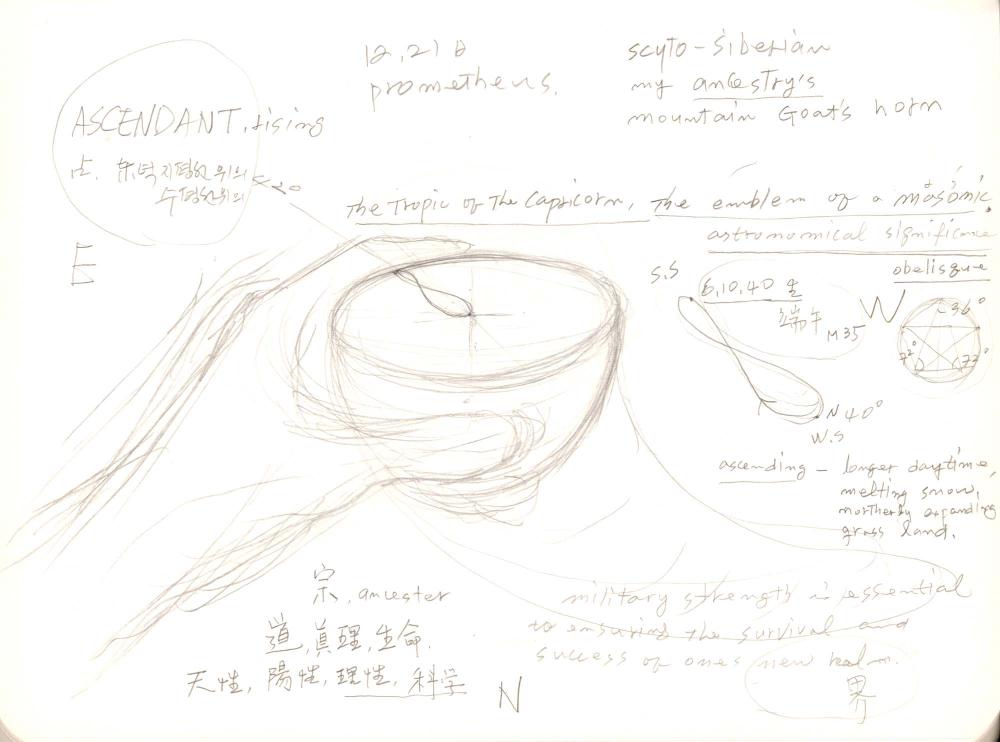 12.21日
prometheus.
scyto-siberian
my ancestry's
mountain Goat's horn
ASCENDANT, rising
点. 东녘지평선 위의
수평선위의
E
The Tropic of The Capricorn, The emblem of a masonic.
astronomical significance
obelisque
S.S
6,10,40 生
端午
M35
W
36°
72° 72°
N40°
W.S
ascending – longer daytime,
melting snow,
northerly expanding
grass land.
宗, ancester
道, 真理, 生命.
天性, 陽性, 理性, 科学
N
military strength is essential
to ensuring the survival and
success of ones new realm.
界